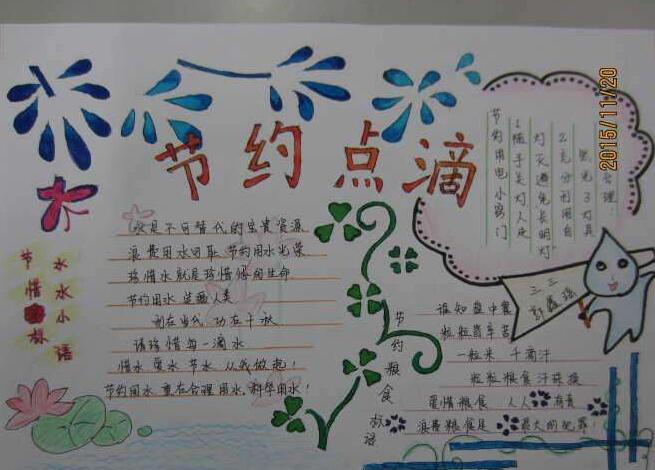 节约点滴
2015/11/20
节惜
水水小语
水是不可替代的宝贵资源
浪费用水可耻 节约用水光荣
珍惜水就是珍惜你的生命
节约用水 造福人类
利在当代 功在千秋
请珍惜每一滴水
惜水 爱水 节水 从我做起!
节约用水 重在合理用水,科学用水!
节约用电小窍门
1随手关灯人走
灯灭避免长明灯
2充分利用自
然光3灯具
合理:
三三
节约粮食
标语
谁知盘中餐
粒粒皆辛苦
一粒米 千滴汗
粒粒粮食汗珠换
爱惜粮食 人人有责
浪费粮食是最大的犯罪!